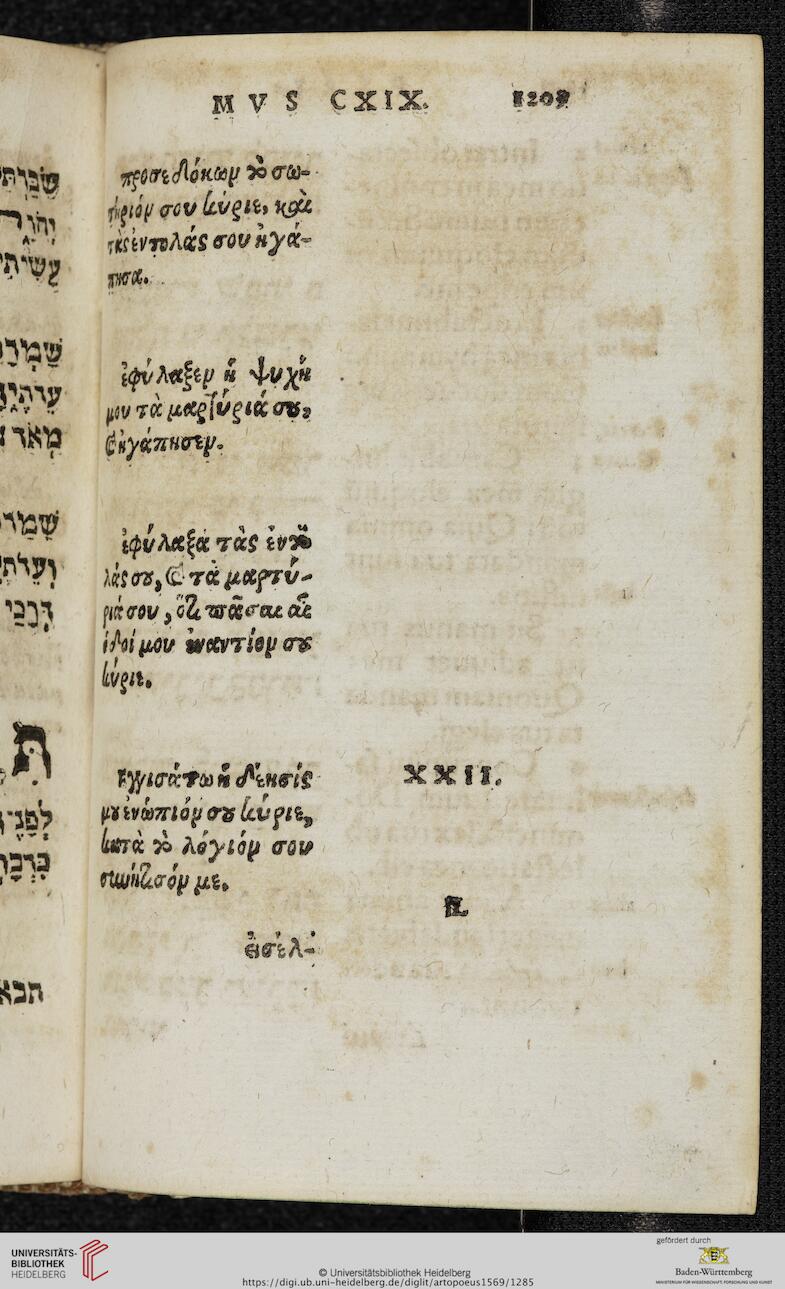 MVS CXIX. 1209
προσεδόκων τὸ σω-
τήριόν σου κύριε, καὶ
τὰς ἐντολάς σου ἠγά-
πησα.
ἐφύλαξεν ἡ ψυχή
μου τὰ μαρτύριά σου,
& ἠγάπησεν.
ἐφύλαξα τὰς ἐντο
λάς σου, & τὰ μαρτύ-
ριά σου, ὅτι πᾶσαι αἱ
ὁδοί μου ἐναντίον σου
κύριε.
Εγγισάτω ἡ δέησίς
μου ἐνώπιόν σου κύριε,
κατὰ τὸ λόγιόν σου
συνήτισόν με.
XXII.
ת
εἰσέλ-
שמר
מאד
דרכי
תבא
UNIVERSITÄTS-
BIBLIOTHEK
HEIDELBERG
© Universitätsbibliothek Heidelberg
https://digi.ub.uni-heidelberg.de/diglit/artopoeus1569/1285
gefördert durch
Baden-Württemberg
MINISTERIUM FÜR WISSENSCHAFT, FORSCHUNG UND KUNST